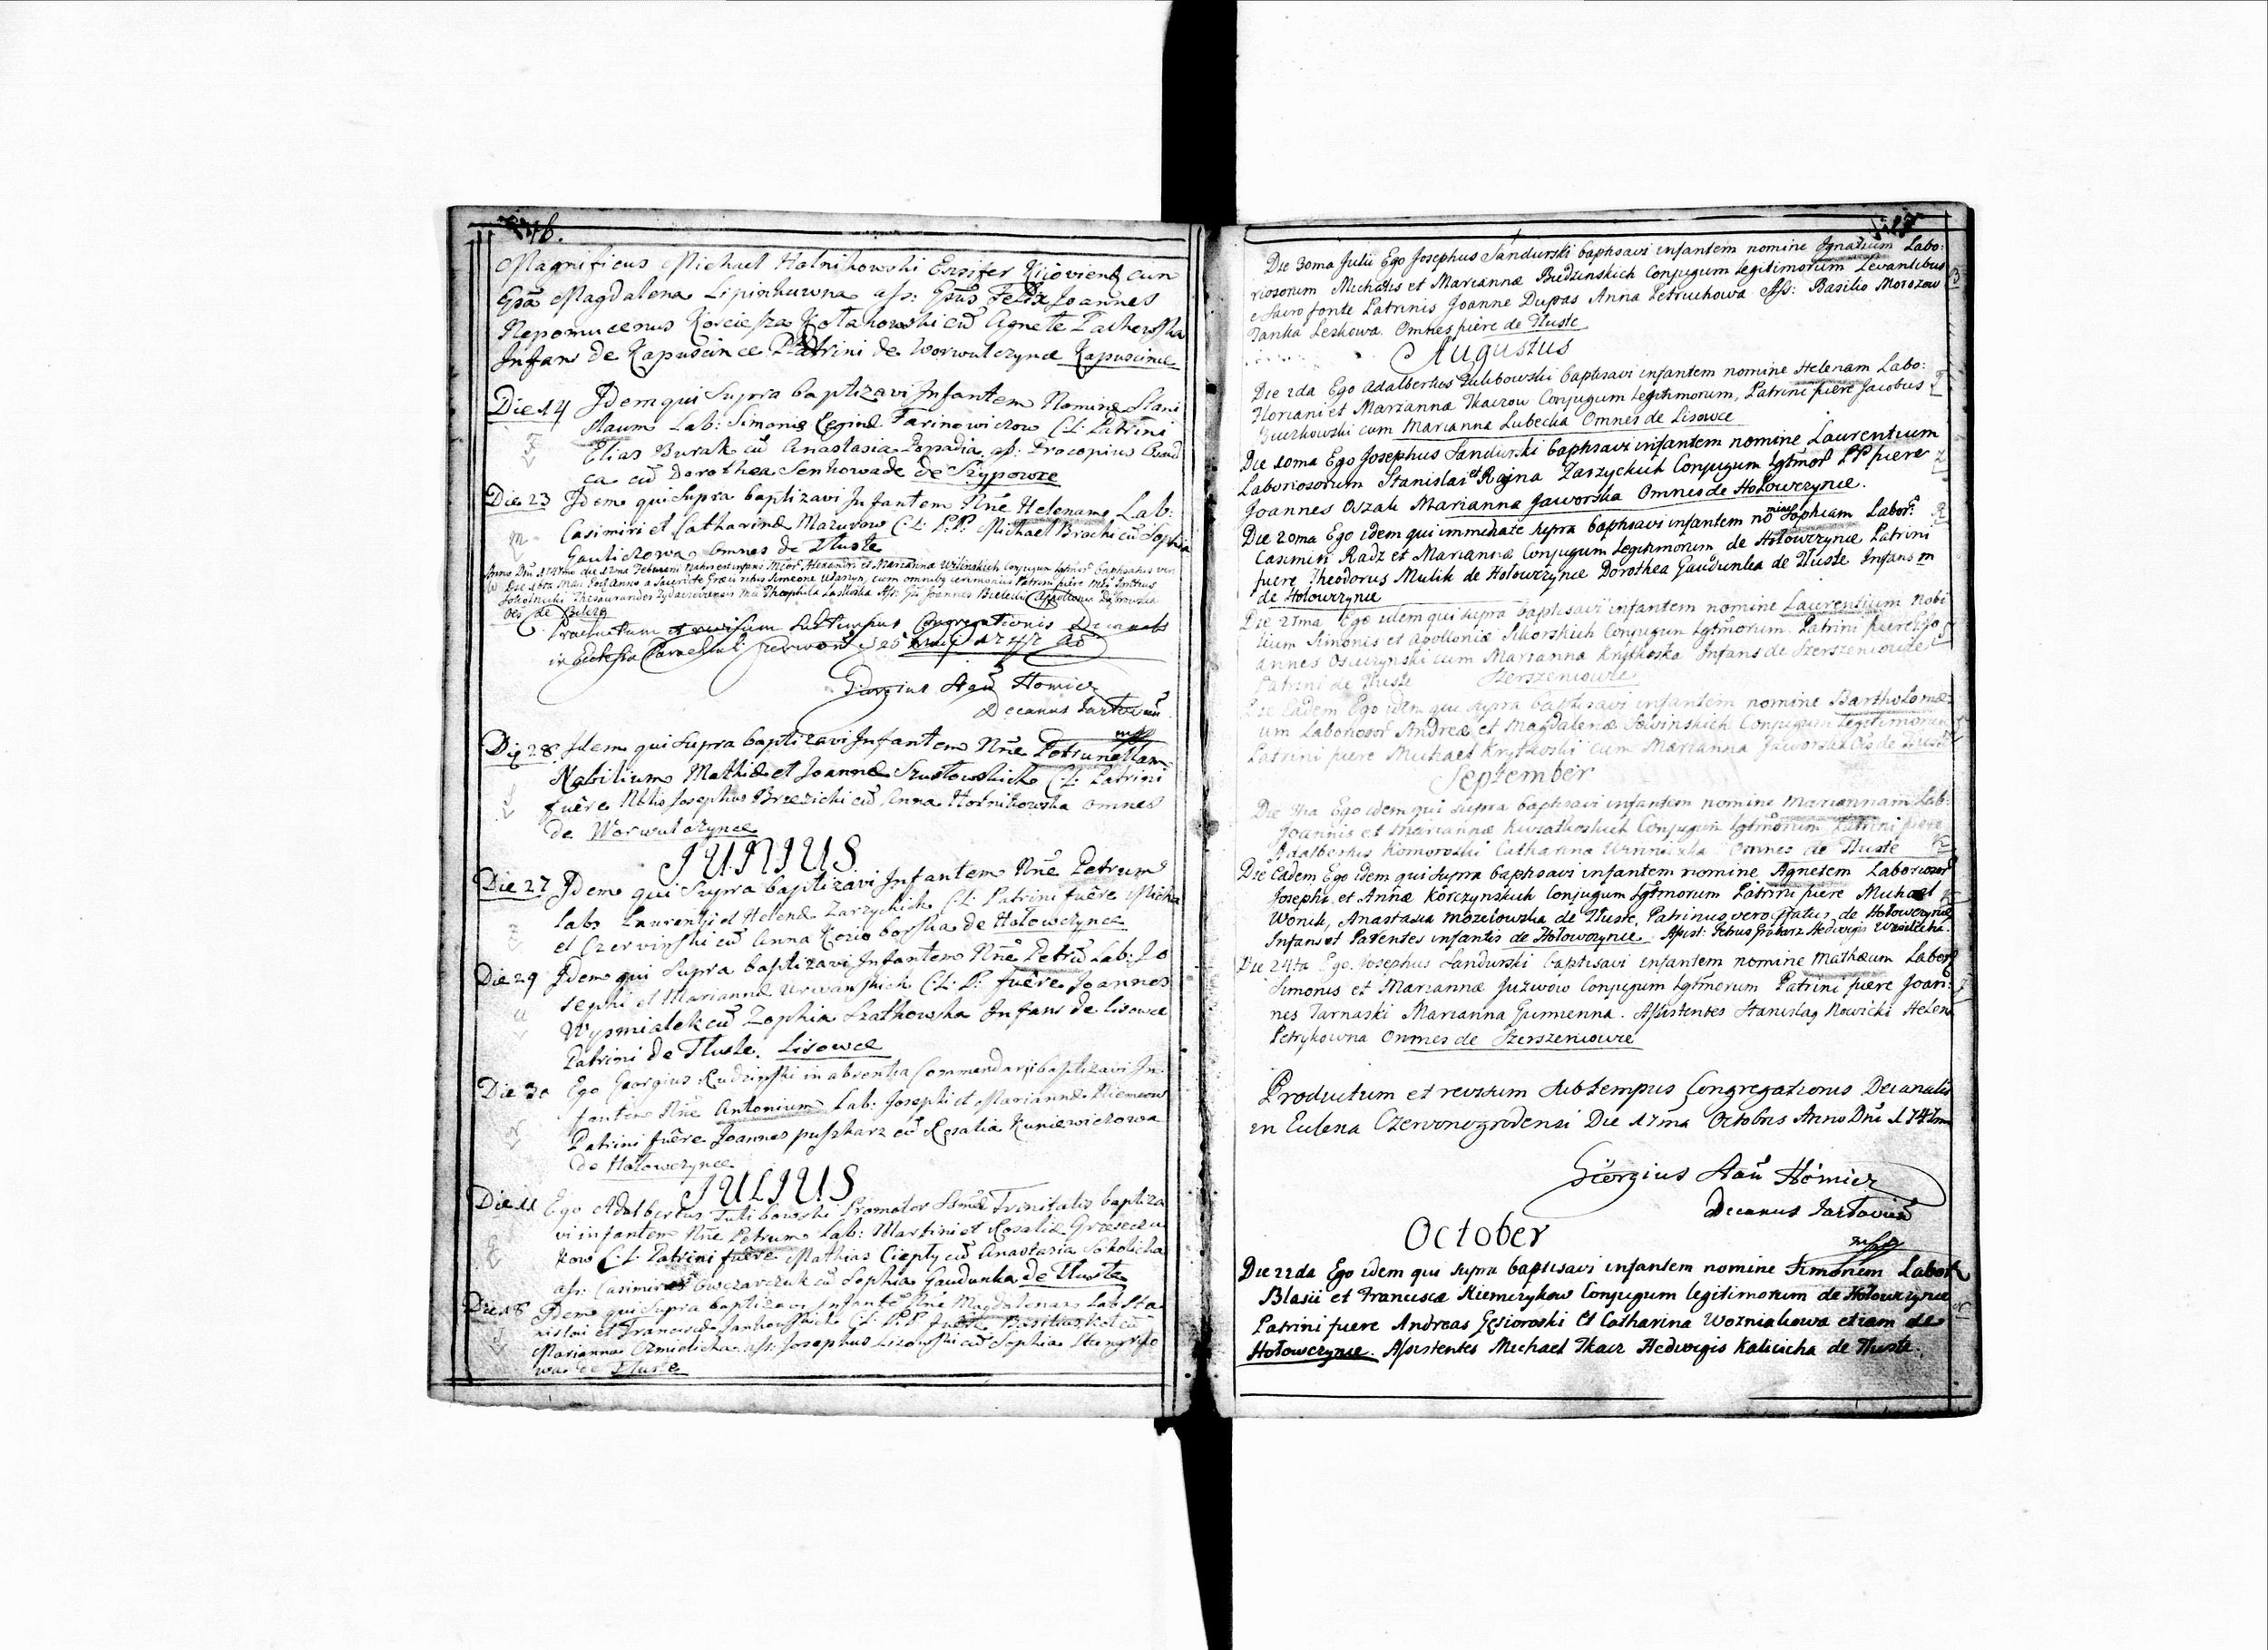 Magnificus Michael Holnikowski Ensifer Kijoviens cum
Gsa Magdalena Lipinkuwna ass: Gsus Felix Joannes
Nepomucenus Korciesza Kotakowski cũ Agnete
Infans de Kapuscince Patrini de Worwulczynce Kapuscince
Die 14 Idem qui Supra baptizavi Infantem Nomine Stani
slaum Lab: Simonis Reginæ Farinowiczow C:L: Patrini
Elias Burak cũ Anastasia Popadia, ass: Procopius
ca cũ Dorothea Senkowa de de Szypowce
Die 23 Idem qui Supra baptizavi Infantem Nñe Helenam Lab:
Casimiri et Catharinæ Mazurow C:L: P.P. Michael Brachi cũ Sophia
Gaulichowa Omnes de Tłuste
Anno Dni 1747mo die 12ma Februarii Natus est infans Alexandri et Marianna Wilinskich Conjugum
Die Maii Eod: Anno a Sacerdote Græci ritus Simeone cum omnibus cerimoniis Patrini fuere
Theophila Laskoska Ass: Joannes Bielecki Appollonia
de Bilcze
Productum et revisum Sub tempus Congregationis Decanalis
in Ecclesia Parochiali
Giorgius Homicz
Decanus
mp
Die 28 Idem qui Supra baptizavi Infantem Nñe Petrunellam
Nobilium Mathiæ et Joannæ Szustowskich C:L: Patrini
fuere Nblis Josephus Brzezicki cũ Anna Holnikowska omnes
de Worwulczynce
JUNIUS
Die 27 Idem qui Supra baptizavi Infantem Nñe Petrum
Lab: Laurentii et Helenæ Zarzyckich C:L: Patrini fuere Micha
el Czerwinski cũ Anna Kozioborska de Hołowczynce
Die 29 Idem qui Supra baptizavi Infantem Nñe Petrũ Lab: Jo
sephi et Mariannæ Urwanskich C:L: P: fuere Joannes
Wysmialek cũ Zophia Szatkowska Infans de Lisowce
Patrini de Tłuste. Lisowce
Die 30 Ego Georgius Rudzinski in absentia Commendarii baptizavi In
fantem Nñe Antonium Lab: Josephi et Mariannæ Niemcow
Patrini fuere Joannes puszkarz cũ Rosalia Kuniewiczowa
de Hołowczynce
JULIUS
Die 11 Ego Adalbertus Tulibowski Promotor Ssmæ Trinitatis baptiza
vi infantem Nñe Petrum Lab: Martini et Rosaliæ
kow C:L: Patrini fuere Mathias Ciepły cũ Anastasia Sokolicha
ass: Casimirus Owczarczuk cũ Sophia Gaudunka de Tłuste
Die 18 Idem qui Supra baptizavi Infantẽ Nñe Magdalenam Lab: Sta
nislai et Franciscæ Jankowskich C:L: P.P. fuere Basilius Kot cũ
Marianna ass: Josephus Lisowski cũ Sophia
wa de Tłuste
Die 30ma Julii Ego Josephus Sandurski baptisavi infantem nomine Ignatium Labo:
riosorum Michælis et Mariannæ Budzinskich Conjugum Legitimorum Levantibus
e Sacro fonte Patrinis Joanne Dupas Anna Petruchowa Ass: Basilio Morozow
Tanka Leskowa. Omnes fuere de Tłuste
Augustus
Die 2da Ego Adalbertus Tulibowski baptisavi infantem nomine Helenam Labo:
Floriani et Mariannæ Tkaczow Conjugum Legitimorum, Patrini fuere Jacobus
cum Marianna Lubecka Omnes de Lisowce
Die 10ma Ego Josephus Sandurski baptisavi infantem nomine Laurentium
Laboriosorum Stanislai et Regina Zarzyckich Conjugum Lgtmor PP fuere
Joannes Oszak Marianna Jaworska Omnes de Hołowczynce.
Die 20ma Ego idem qui immediate supra baptisavi infantem nomine Sophiam Labor:
Casimiri Radz et Mariannæ Conjugum Legitimorum de Hołowczynce Patrini
fuere Theodorus Mulik de Holowczynce Dorothea Gaudunka de Tłuste Infans
de Hołowczynce
Die 27ma Ego idem qui supra baptisavi infantem nomine Laurentium Nobi
lium Simonis et Apolloniæ Sikorskich Conjugum Lgtmorum. Patrini fuere Jo
annes Osuczynski cum Marianna Krytkoska Infans de Szerszeniowce
Patrini de Tłuste Szerszeniowce
Die Eadem Ego idem qui supra baptisavi infantem nomine Bartholomæ
um Laborosor Andreæ et Magdalenæ Sowinskich Conjugum Legitimorum
Patrini fuere Michael Krytkoski cum Marianna Jaworska Oes de Tłuste
September
Die Ego idem qui supra baptisavi infantem nomine Mariannam Lab:
Joannis et Mariannæ Kwiatkoskich Conjugum Lgtmorum Patrini fuere
Adalbertus Komoroski Catharina Winnicka Omnes de Tłuste
Die Eadem Ego idem qui supra baptisavi infantem nomine Agnetem Laborioser
Josephi et Annæ Korczynskich Conjugum Lgtmorum Patrini fuere Michael
Wonik, Anastasia Mozelowska de Tłuste, Patrinus vero de Hołowczynce
Infans et Parentes infantis de Hołowczynce. Assist: Petrus Grabarz Hedwigis
Die 24ta Ego Josephus Sandurski baptisavi infantem nomine Mathæum Labor
Simonis et Mariannæ Juzwow Conjugum Lgtmorum Patrini fuere Joan:
nes Tarnaski Marianna Gumienna. Assistentes Stanislaq Nowicki Helena
Petrykowna Omnes de Szerszeniowce
Productum et revisum Sub tempus Congregationis Decanalis
in Eulena Czerwonogrodensi Die 17ma Octobris Anno Dni 1747mo
Giorgius Homicz
Decanus
mp
October
Die 22da Ego idem qui supra baptisavi infantem nomine Simonem Labor
Blasii et Franciscæ Kiemczykow Conjugum legitimorum de Hołowczynce
Patrini fuere Andreas Gęsioroski et Catharina Wozniakowa etiam de
Hołowczynce. Assistentes Michael Tkacz Hedwigis Kalicicha de Tłuste.